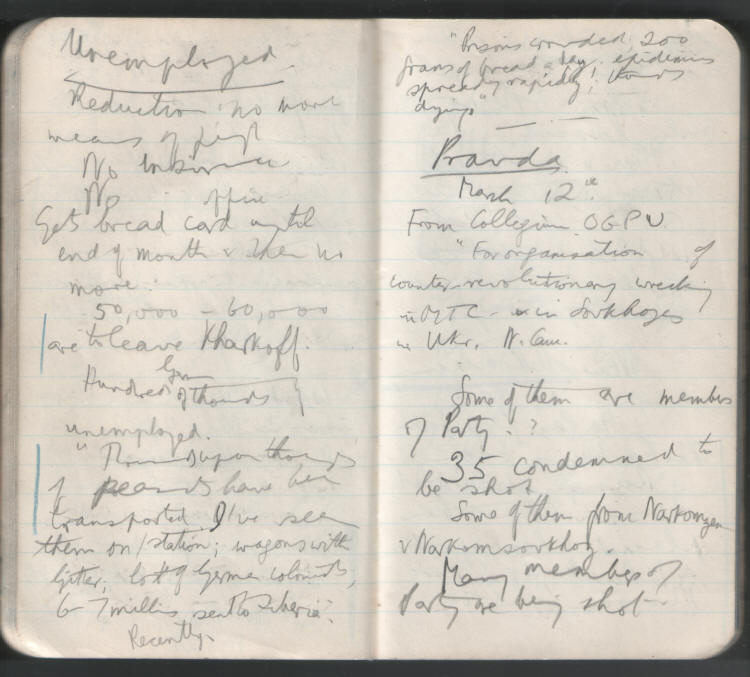 Unemployed.
Reduction no more
means of
No Insurance
No office
Gets bread card until
end of month & then no
more.
50,000 - 60,000
are to leave Kharkoff.
Hundreds of thousands
unemployed.
"Thousands upon thousands
of peasants have been
transported. I've seen
them on station; wagons with
litter, lot of German colonists,
6-7 millions sent to Siberia.
Recently.
"Prisons crowded, 200
grams of bread a day. epidemics
spreading rapidly! thousands
dying"
Pravda
March 12th
From Collegium OGPU
"For organisation of
counter-revolutionary wrecking
in MTC - & in Sovkhozes
in Ukr, N. Cauc.
Some of them are members
of Party. ?
35 condemned to
be shot
Some of them from Narkomzem
& Narkomsovkhoz.
Many members of
Party are being shot